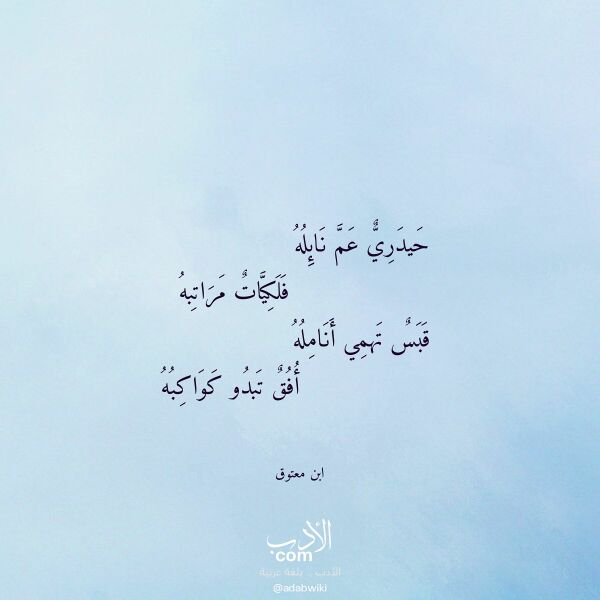 حَيدَرِيٌّ عَمَّ نَائِلُهُ
فَلَكِيَّاتٌ مَرَاتِبهُ
قَبَسٌ تَهمِي أَنَامِلُهُ
أُفُقٌ تَبدُو كَوَاكِبُهُ
ابن معتوق
الأدب
com
الأدب .. بلغة عربية
@adabwiki